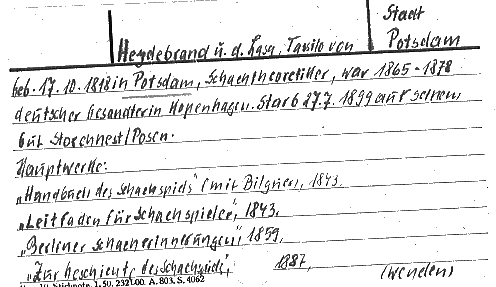 Stadt
Heydebrand u. d. Lasa, Tassilo von Potsdam
geb. 17. 10. 1818 in Potsdam, Schachtheoretiker, war 1865-1878
deutscher Gesandter in Kopenhagen. Starb 27.7. 1899 auf seinem
Gut Storchnest/Posen.
Hauptwerke:
„Handbuch des Schachspiels" (mit Bilguer), 1843,
„Leitfaden für Schachspieler", 1843,
„Berliner Schacherinnerungen", 1859,
„Zur Geschichte des Schachspiels", 1887,
(wenden)
1. 50. 232100. A. 803. S. 4062